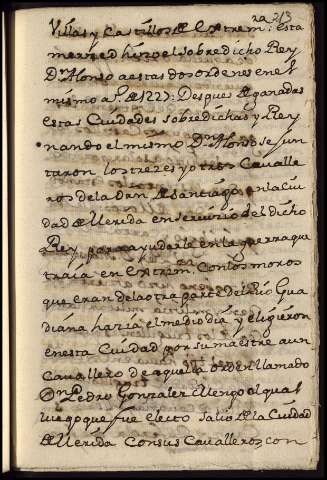 213
Villas y Castillos de Extrem.ª esta
merzed hizo el sobredicho Rey
D.n Alonso a estas dos ordenes en el
mismo a.º de 1227: Despues de ganadas
estas Ciudades sobredichas y Rey
nando el mismo D.n Alonso se jun
taron los trezes y otros Cavalle
ros de la Orn. de Santiago en la Ciu
dad de Merida en servicio del dicho
Rey para ayudarla en la guerra que
traia en Extrem.ª Con los moros
que eran de la otra parte del Rio Gua
diana hazia el medio dia y eligieron
en esta Ciudad por su maestre a un
Cavallero de aquella orden llamado
D.n Pedro Gonzalez Mengo el qual
luego que fue electo salio de la Ciudad
de Merida Con sus Cavalleros, con